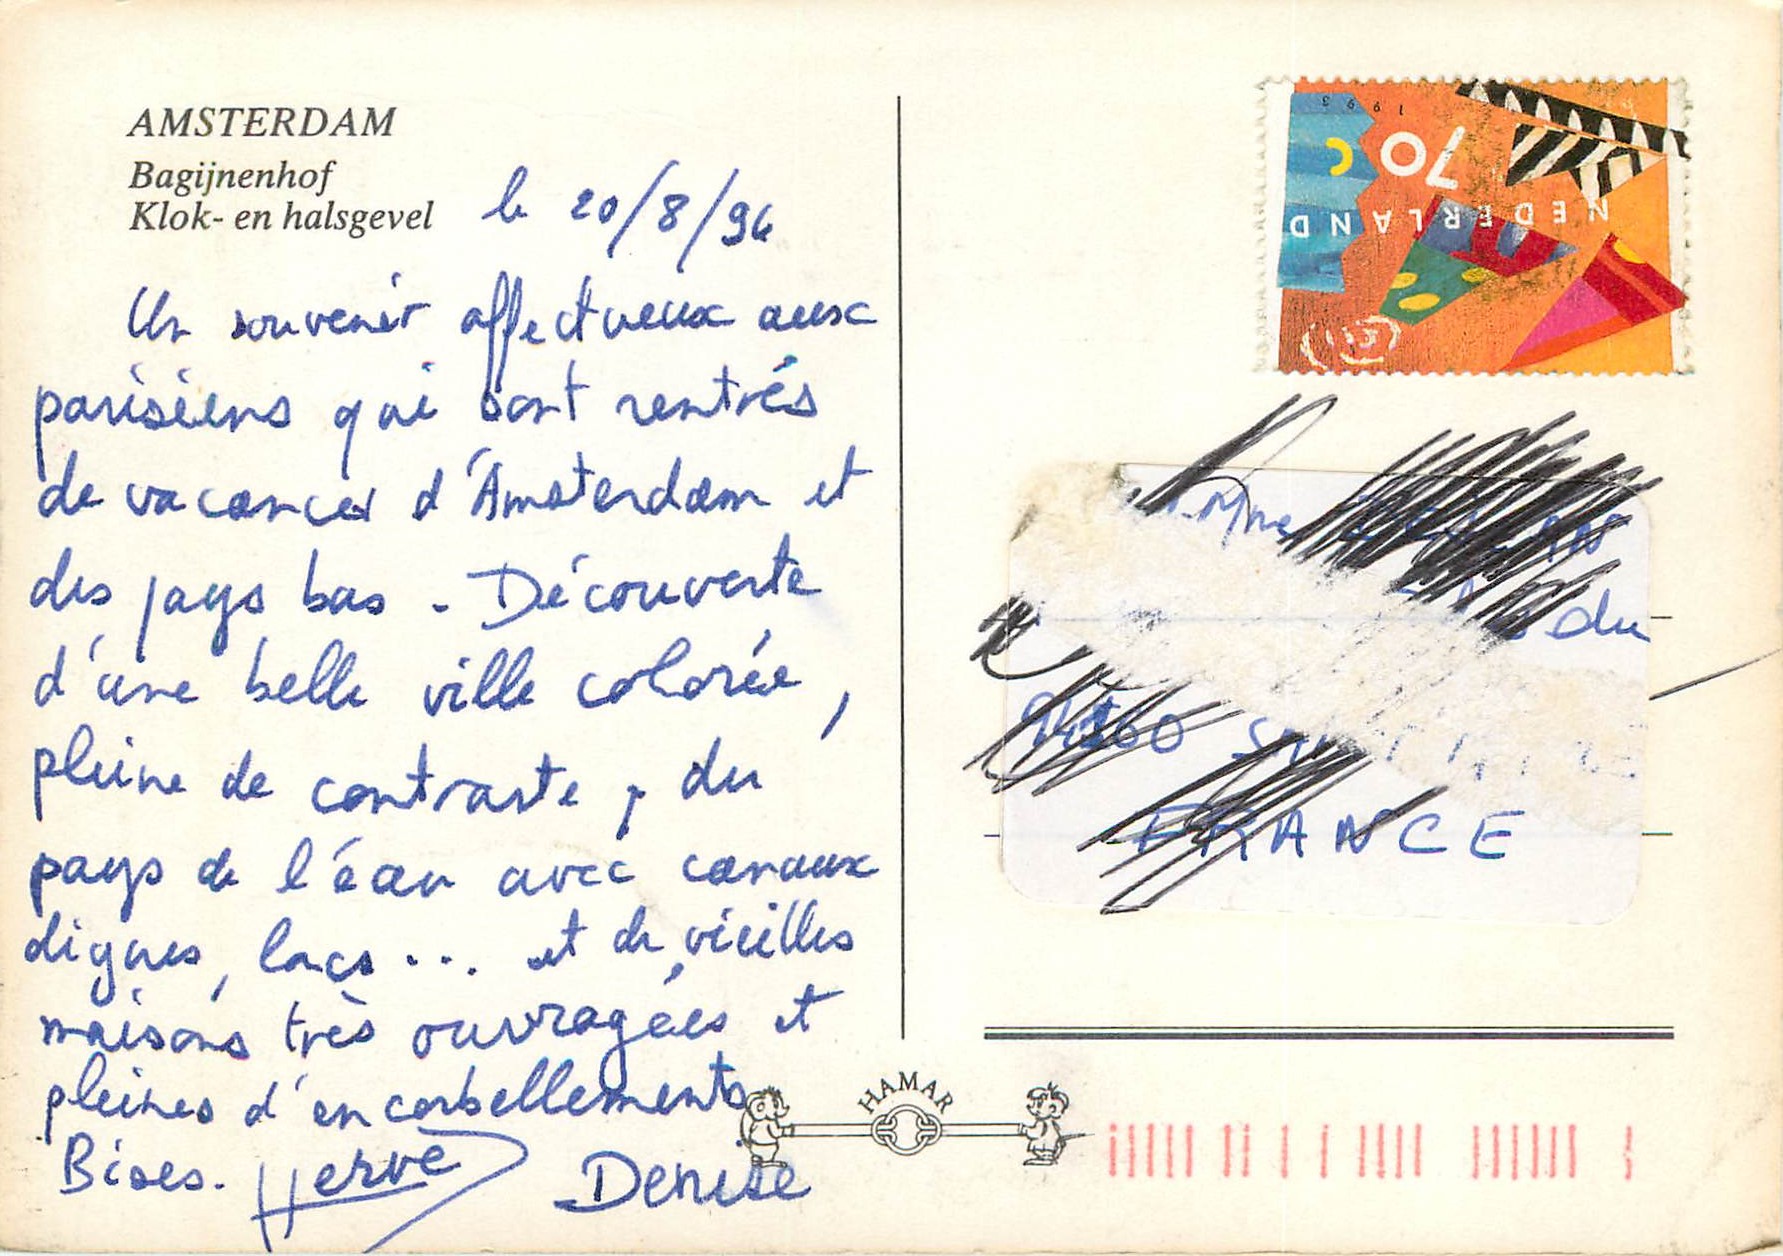 AMSTERDAM
Bagijnenhof
Klok- en halsgevel
le 20/8/94
Un souvenir affectueux aux
parisiens qui sont rentrés
de vacances d'Amsterdam et
des pays bas. Découverte
d'une belle ville colorée,
pleine de contraste, du
pays de l'éau avec canaux
digues, lacs... et de vieilles
maisons très ouvragées et
pleines d'encorbellements
Bises. Hervé Denise
HAMAR
1993
70 c
NEDERLAND
Mme
du
FRANCE